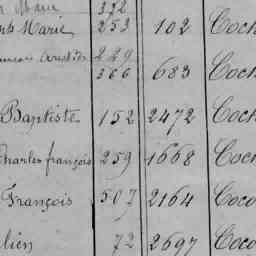 Marie 332
Marie 253 102 Coch
229
366 683 Coch
Baptiste 152 2472 Coch
Charles françois 259 1668 Coch
François 507 2164 Coco
lien 72 2697 Coco